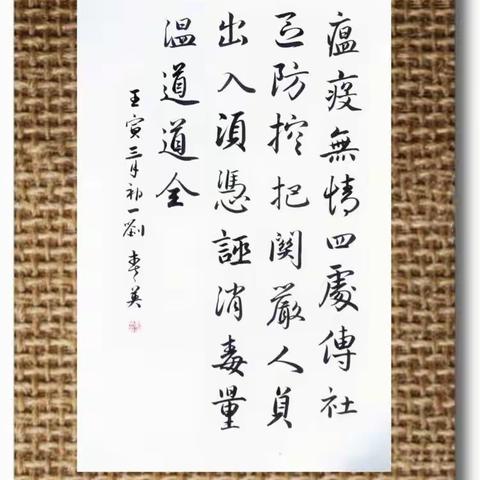 瘟疫無情四處傳社
区防控把關嚴人員
出入須憑誣消毒量
温道道全
壬寅三月初一劉英